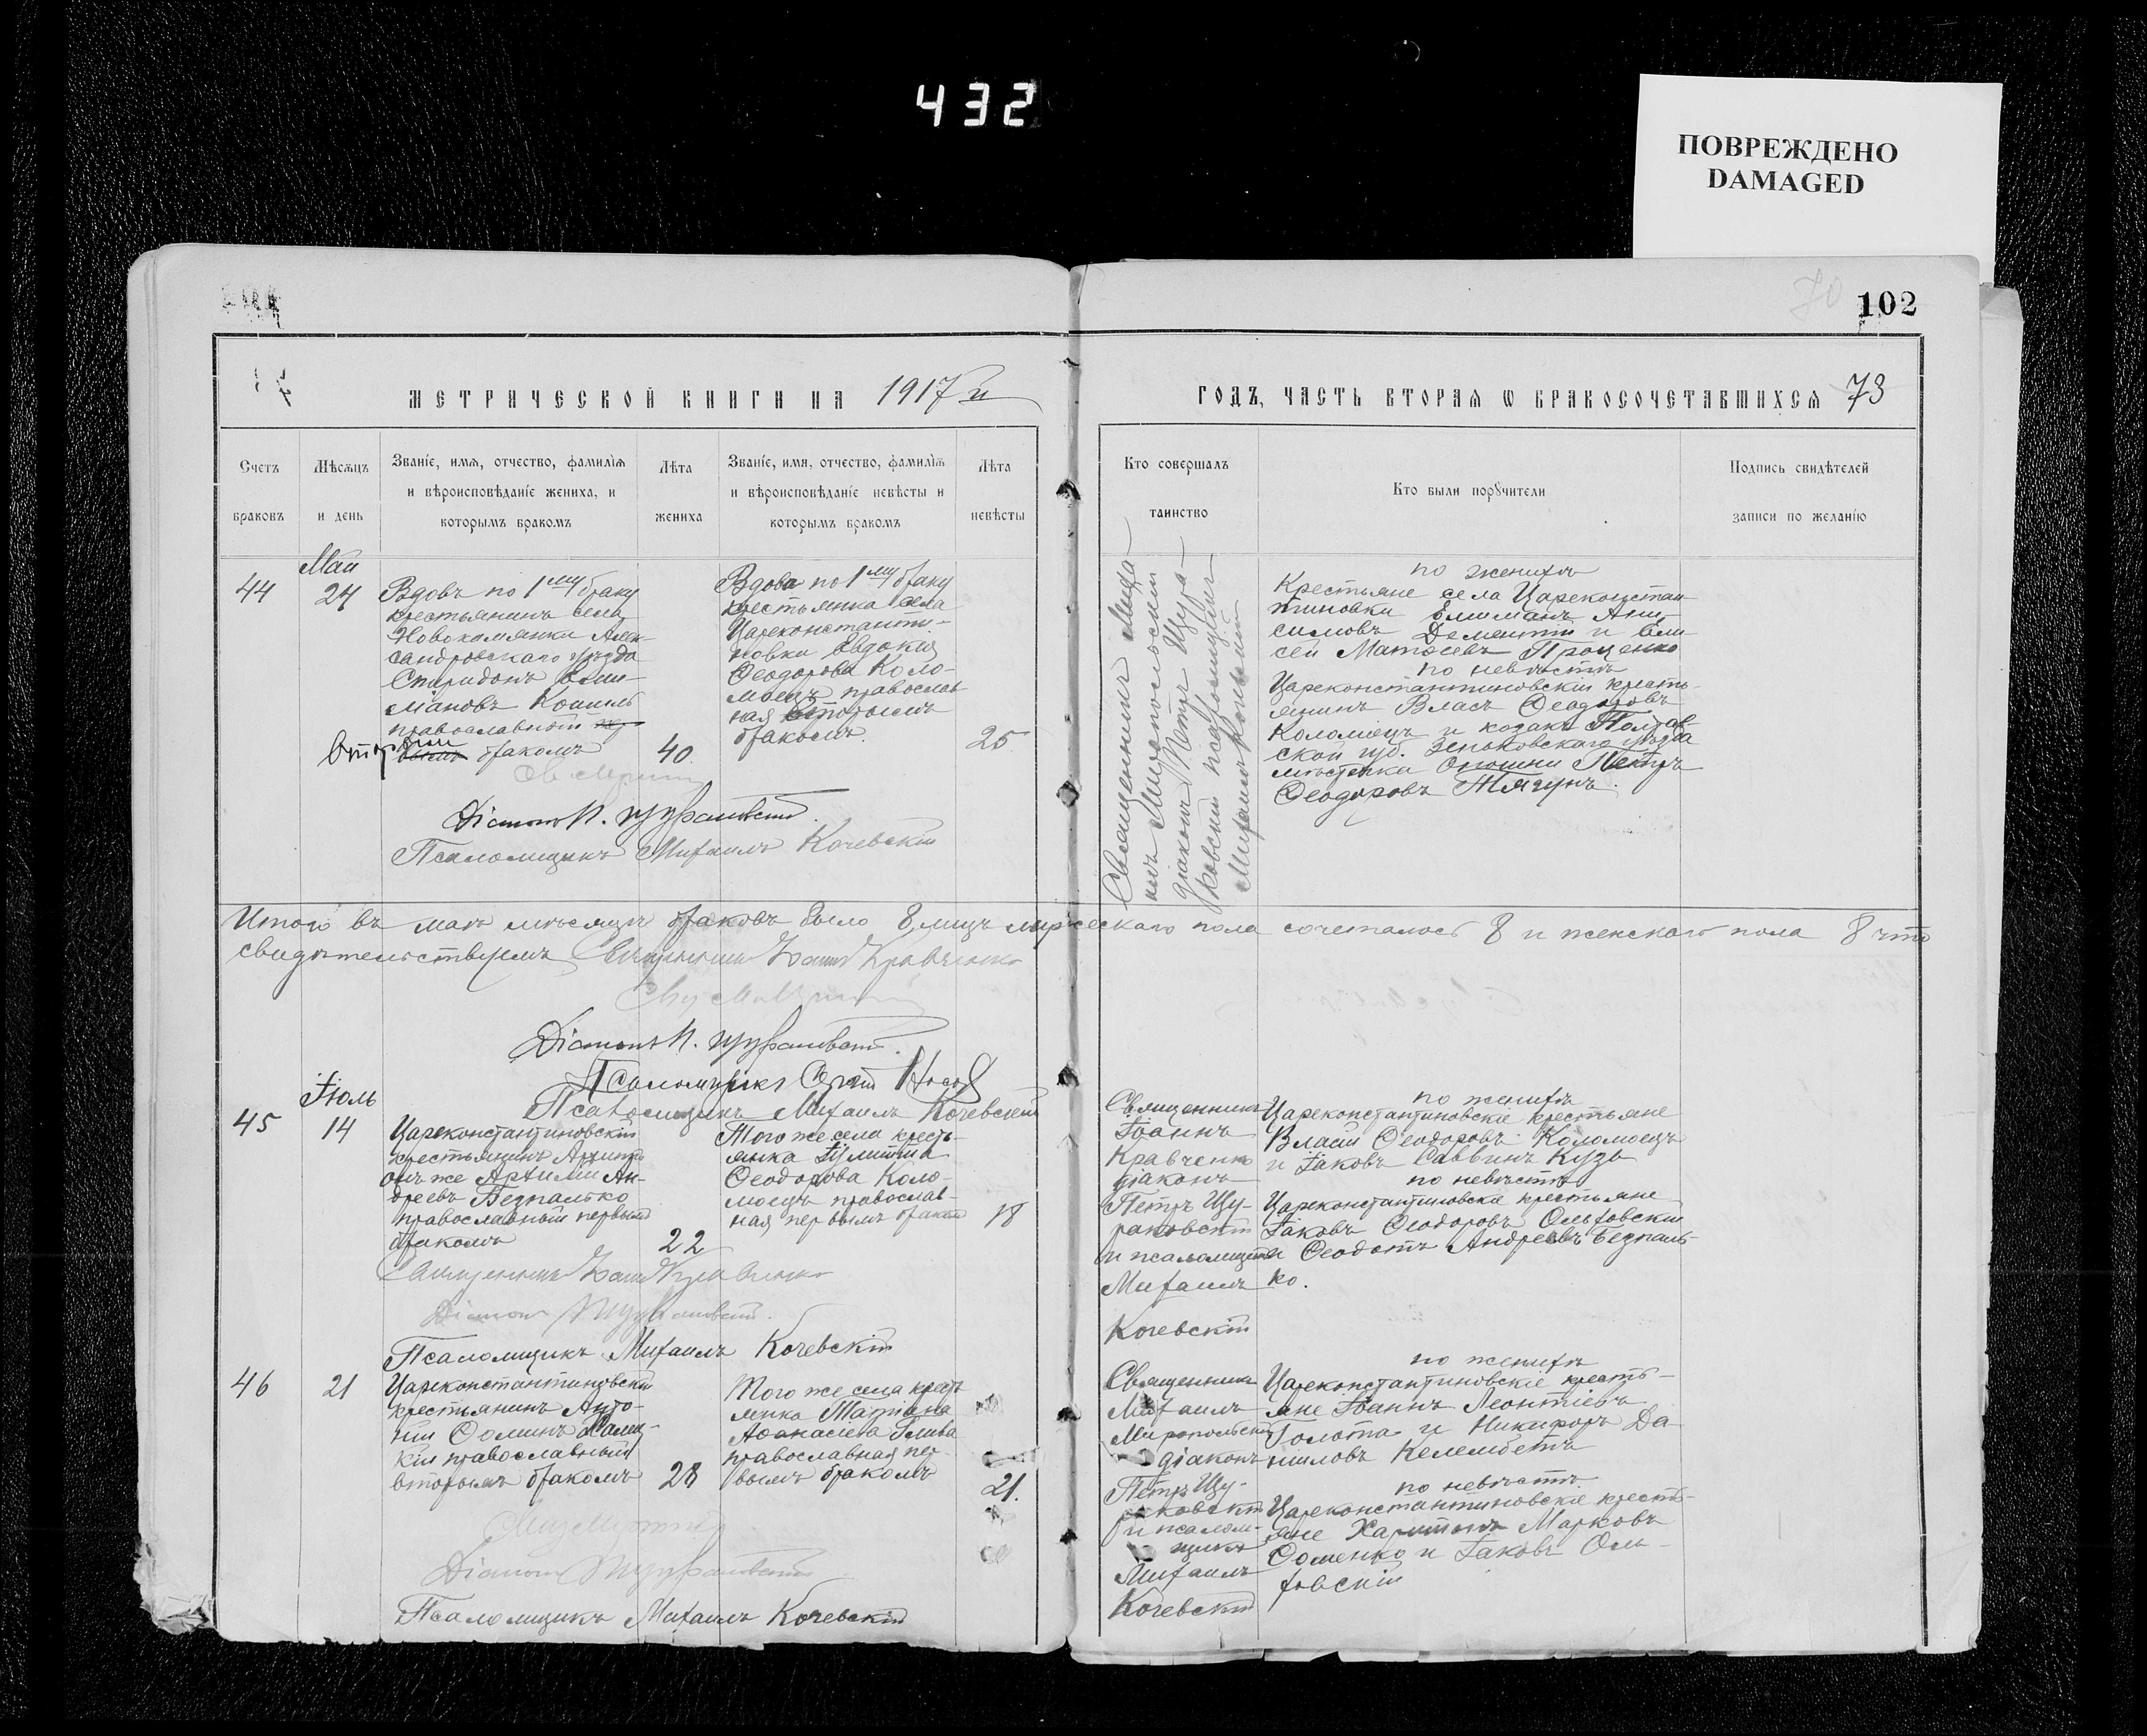 432
ПОВРЕЖДЕНО
DAMAGED
70
102
МЕТРИЧЕСКОЙ КНИГИ НА 1917 й
ГОДЪ, ЧАСТЬ ВТОРАЯ Ѡ БРАКОСОЧЕТАВШИХСЯ 73
Счетъ браковъ
Мѣсяцъ и день
Званіе, имя, отчество, фамилія
и вѣроисповѣданіе жениха, и
которымъ бракомъ
Лѣта жениха
Званіе, имя, отчество, фамилія
и вѣроисповѣданіе невѣсты и
которымъ бракомъ
Лѣта невѣсты
Кто совершалъ таинство
Кто были поручители
Подпись свидѣтелей
записи по желанію
44
Май
24
Вдовъ по 1му браку
крестьянинъ села
Новокамянки Алек-
сандровскаго уѣзда
Спиридонъ
православный
вторымъ бракомъ
40.
Вдова по 1му браку
крестьянка села
Цареконстанти-
новки Евдокія
Ѳеодорова Коло-
моецъ православ-
ная вторымъ
бракомъ.
25
Священникъ Миха-
илъ Миропольскій
діаконъ Петръ Щура-
ковскій псаломщикъ
Михаилъ Кочевскій
по женихѣ
Крестьяне села Цареконстан-
тиновки Ани-
симовъ Дементій и Ели-
сей Матѳеевъ Проценко
по невѣстѣ
Цареконстантиновскій кресть-
янинъ Власъ Ѳеодоровъ
Коломоецъ и козакъ Полтав-
ской губ. Зеньковскаго уѣзда
мѣстечка Опошни Петръ
Ѳеодоровъ Тягунъ.
Діаконъ П. Щураковскій.
Псаломщикъ Михаилъ Кочевскій
Итого въ маѣ мѣсяцѣ браковъ было 8, лицъ мужескаго пола сочеталось 8 и женскаго пола 8 что
свидѣтельствуемъ Священникъ Іоаннъ Кравченко
Діаконъ П. Щураковскій.
Псаломщикъ
Псаломщикъ Михаилъ Кочевскій
45
Іюль
14
Цареконстантиновскій
крестьянинъ
онъ же Артемій Ан-
дреевъ Безпалько
православный первымъ
бракомъ
22
Того же села кресть-
янка Іулитта
Ѳеодорова Коло-
моецъ православ-
ная первымъ бракомъ
18
Священникъ
Іоаннъ
Кравченко
діаконъ
Петръ Щу-
раковскій
и псаломщикъ
Михаилъ
Кочевскій
по женихѣ
Цареконстантиновскіе крестьяне
Власій Ѳеодоровъ Коломоецъ
и Іаковъ Саввинъ Кузь
по невѣстѣ
Цареконстантиновскіе крестьяне
Іаковъ Ѳеодоровъ Ольховскій
и Ѳеодотъ Андреевъ Безпаль-
ко.
Священникъ Іоаннъ Кравченко
Діаконъ Щураковскій.
Псаломщикъ Михаилъ Кочевскій
46
21
Цареконстантиновскій
крестьянинъ Анто-
ній Ѳоминъ
кій православный
вторымъ бракомъ
28
Того же села кресть-
янка Маріана
Аѳанасіева Глива
православная пер-
вымъ бракомъ
21.
Священникъ
Михаилъ
Миропольскій
діаконъ
Петръ Щу-
раковскій
и псалом-
щикъ
Михаилъ
Кочевскій
по женихѣ
Цареконстантиновскіе кресть-
яне Іоаннъ Леонтіевъ
Голота и Никифоръ Да-
ниловъ Келембетъ
по невѣстѣ
Цареконстантиновскіе кресть-
яне Харитонъ Марковъ
Ѳоменко и Іаковъ Оль-
ховскій
Діаконъ Щураковскій
Псаломщикъ Михаилъ Кочевскій